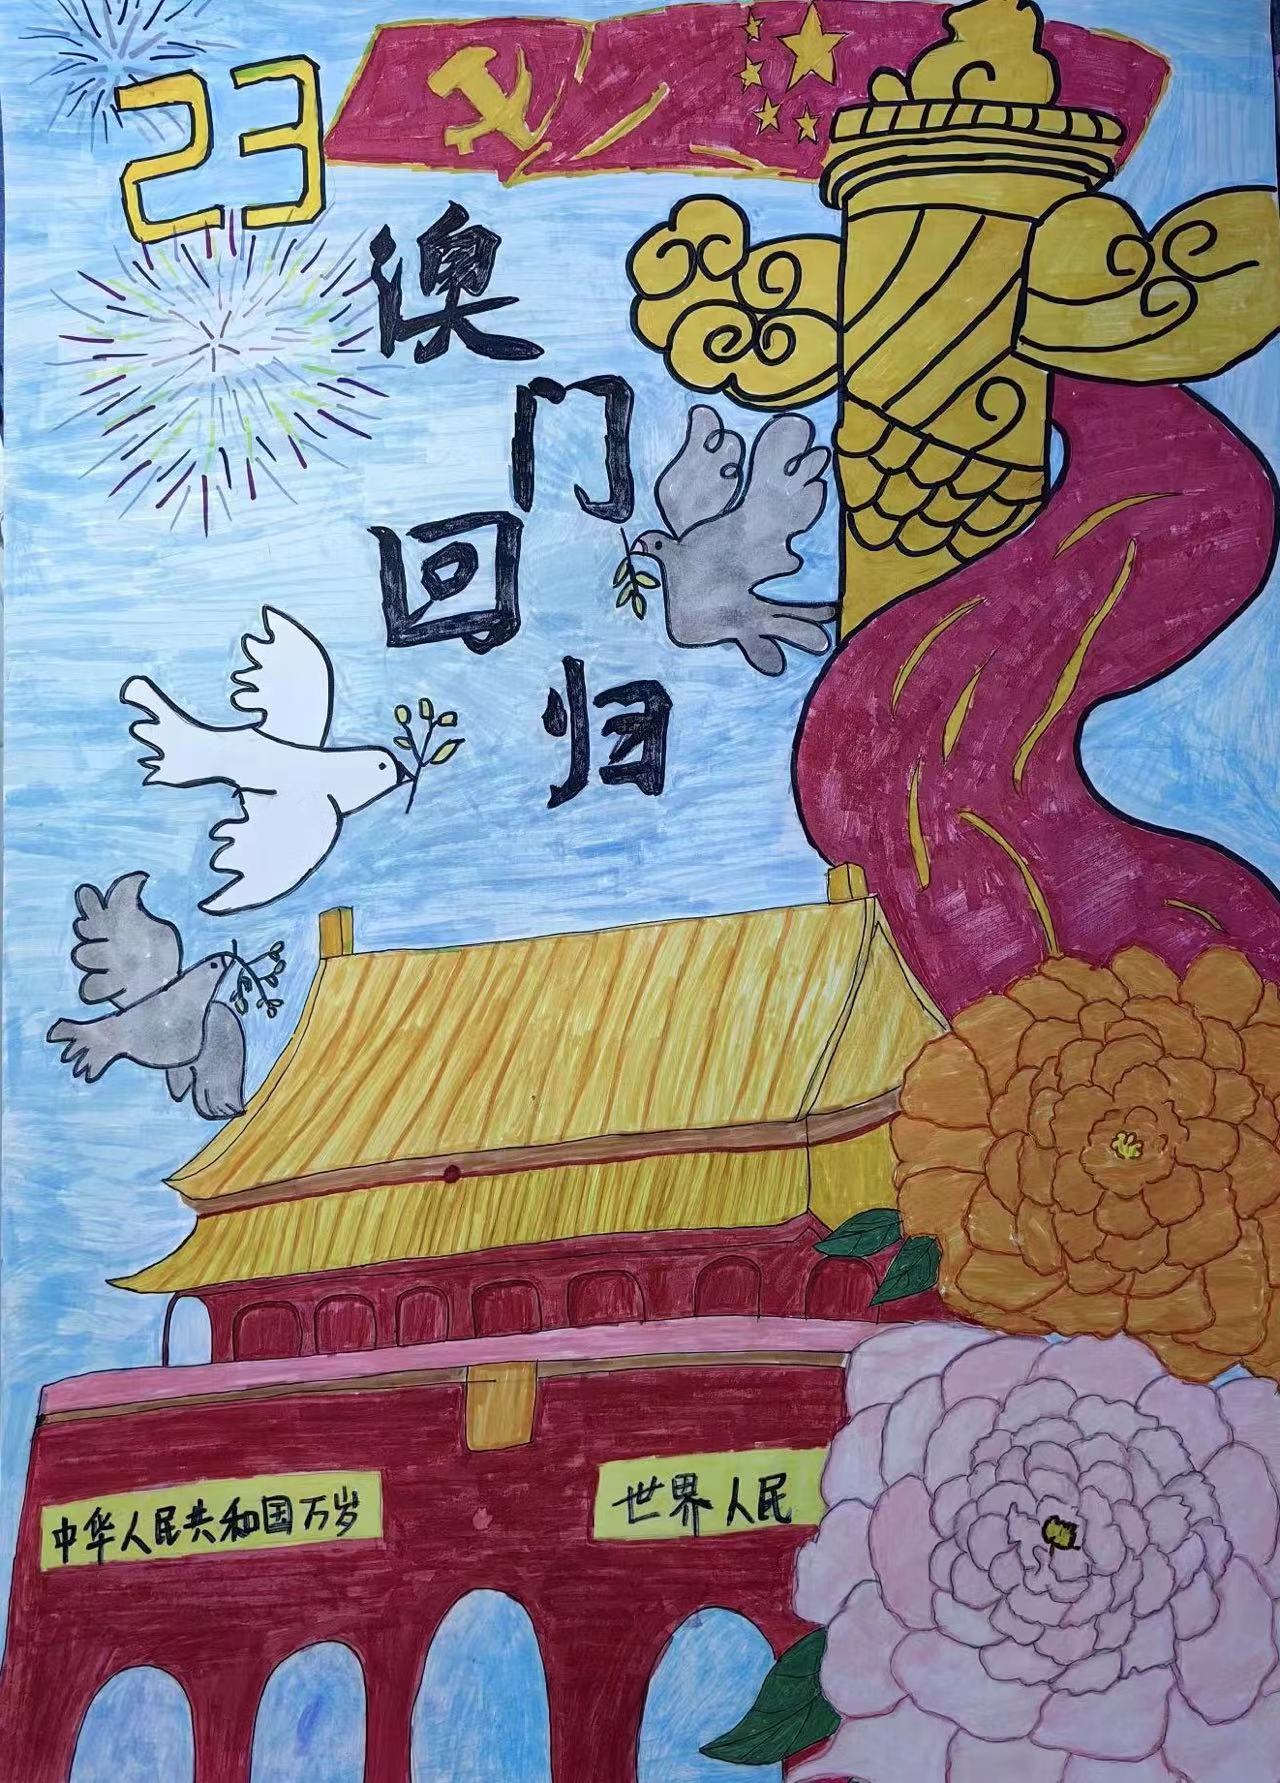 23
澳门回归
中华人民共和国万岁
世界人民